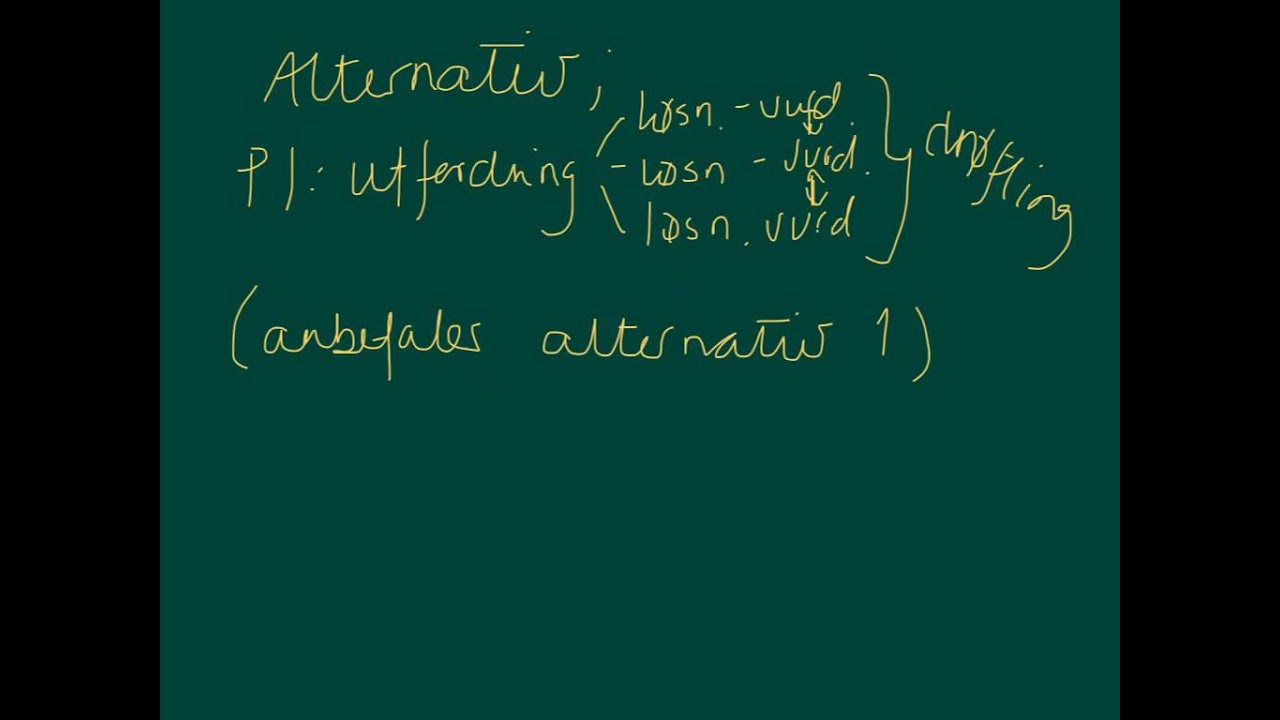 Alternativ;
P1: utfordring
- løsn. - vurd.
- løsn - vurd.
løsn. vurd
drøfting
(anbefales alternativ 1)